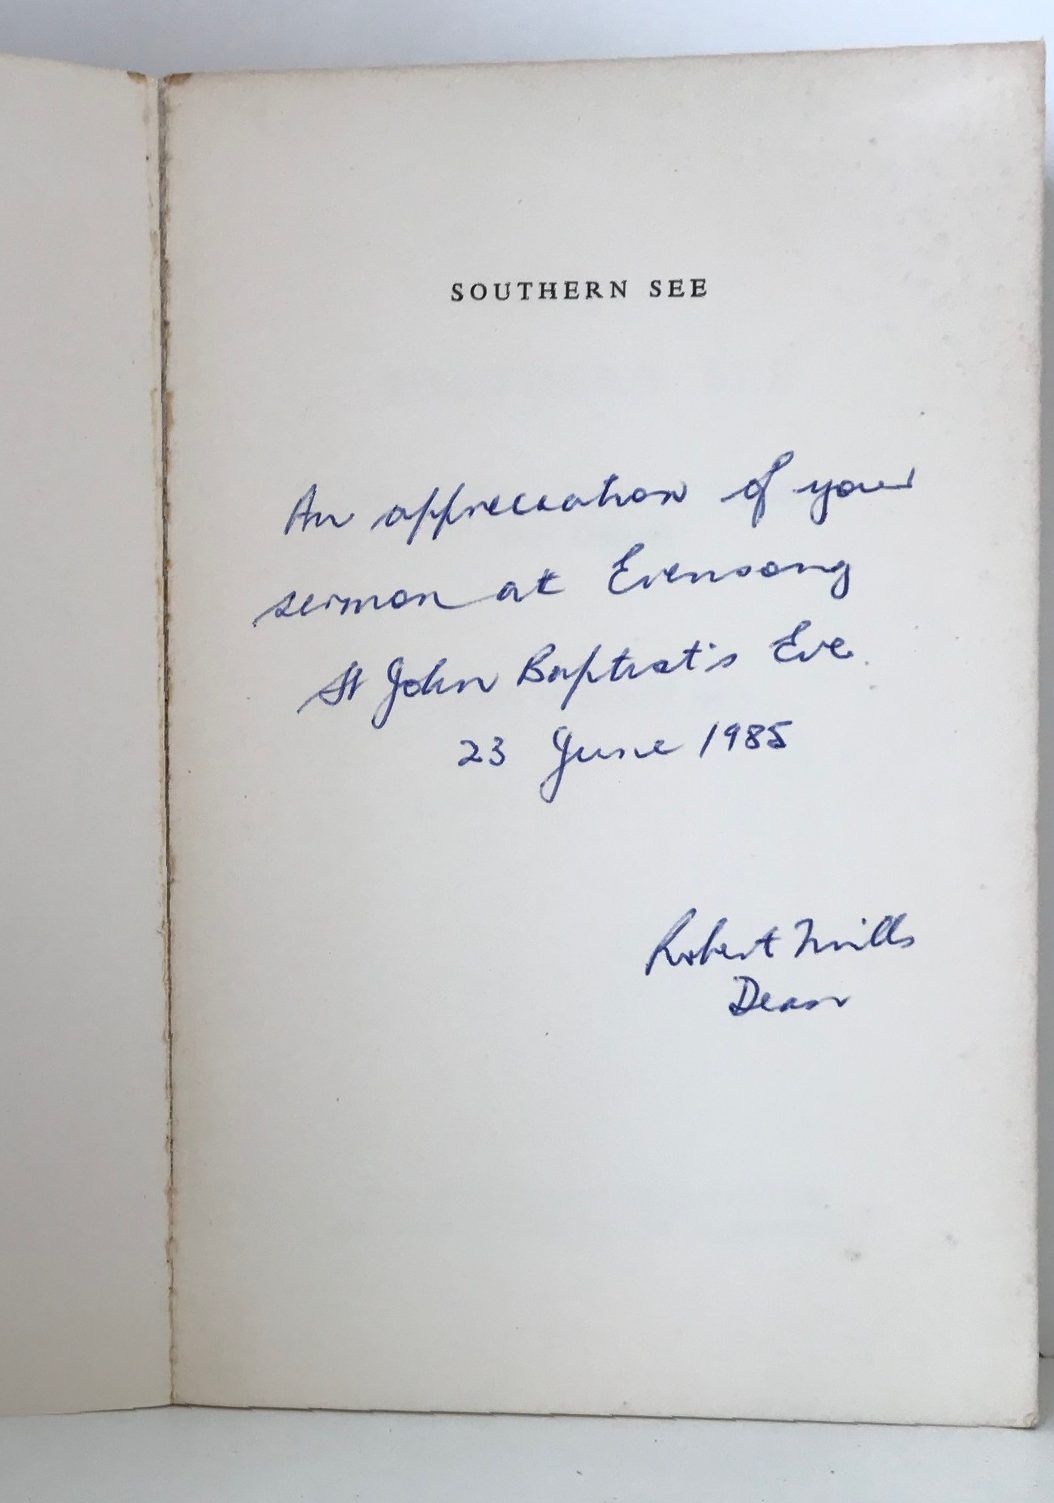 SOUTHERN SEE
An appreciation of your
sermon at Evensong
St John Baptist's Eve
23 June 1985
Robert Mills
Dean